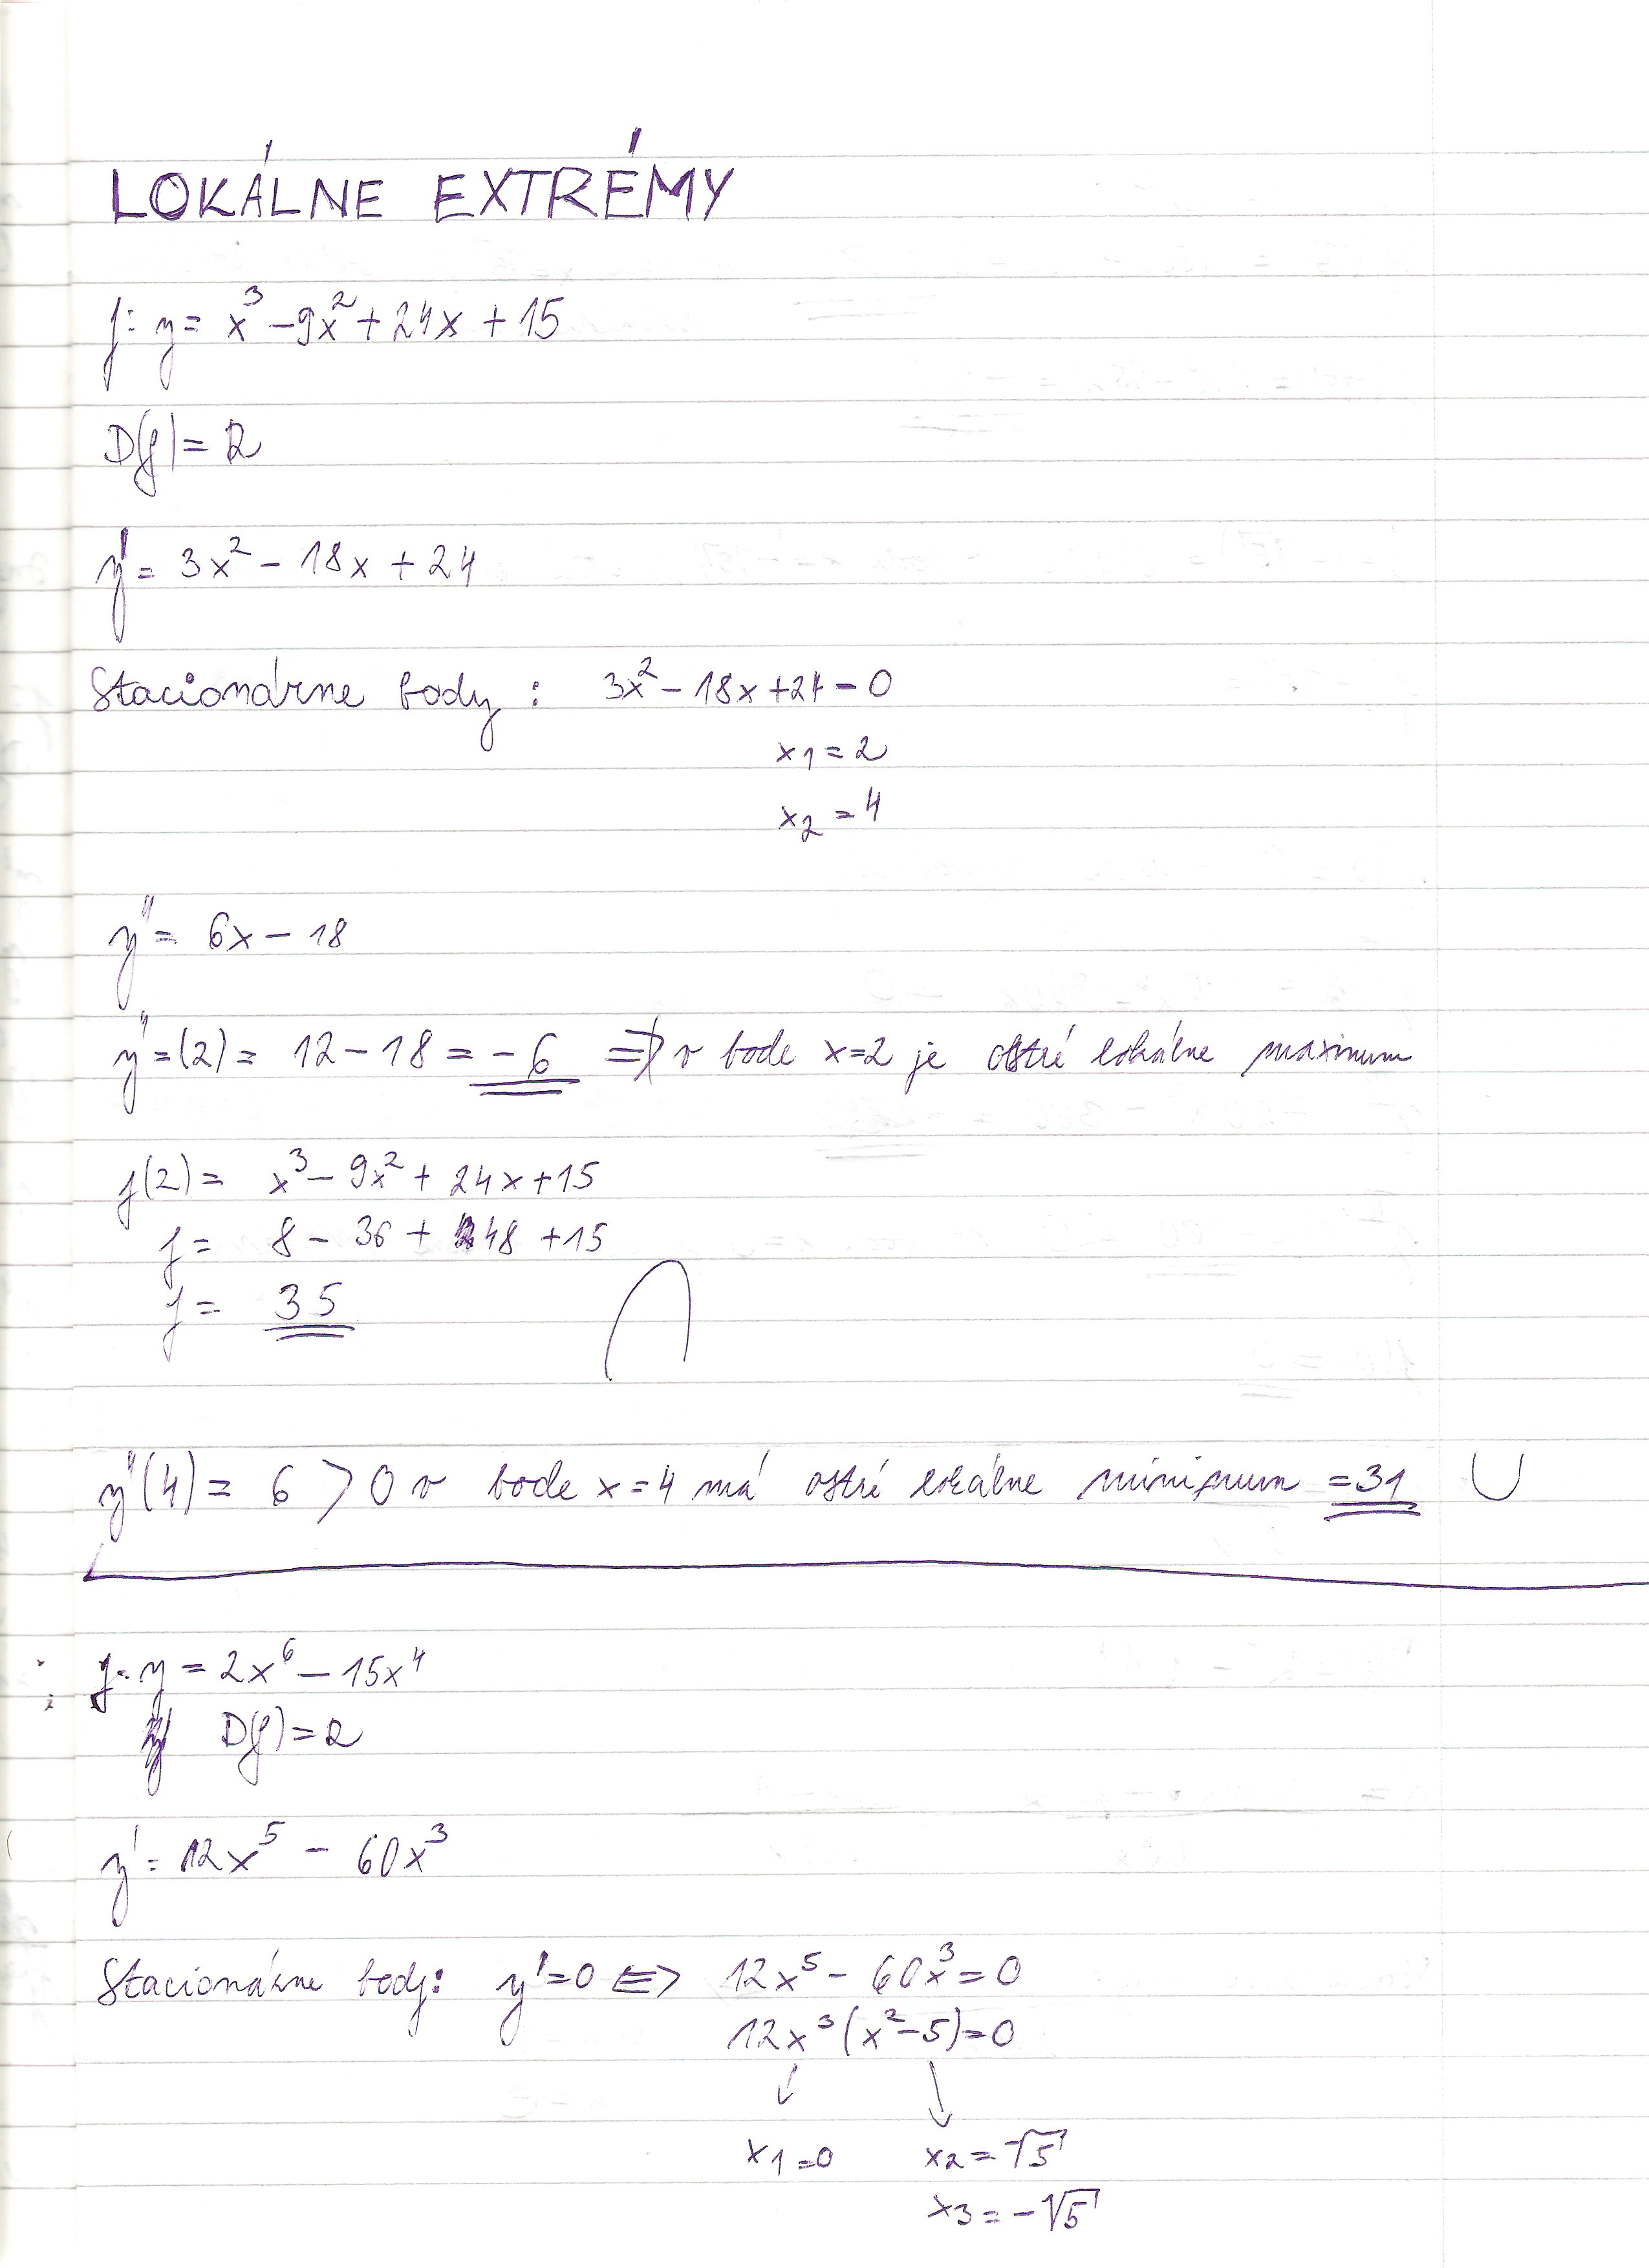 LOKÁLNE EXTRÉMY
f: y = x³ - 9x² + 24x + 15
D(f) = R
y' = 3x² - 18x + 24
Stacionárne body : 3x² - 18x + 24 = 0
x₁ = 2
x₂ = 4
y'' = 6x - 18
y'' = (2) = 12 - 18 = - 6 => v bode x=2 je ostré lokálne maximum
f(2) = x³ - 9x² + 24x + 15
f = 8 - 36 + 48 + 15
f = 35
y''(4) = 6 > 0 v bode x = 4 má ostré lokálne minimum = 31
f: y = 2x⁶ - 15x⁴
D(f) = R
y' = 12x⁵ - 60x³
Stacionárne body: y' = 0 <=> 12x⁵ - 60x³ = 0
12x³ (x² - 5) = 0
x₁ = 0 x₂ = √5
x₃ = -√5